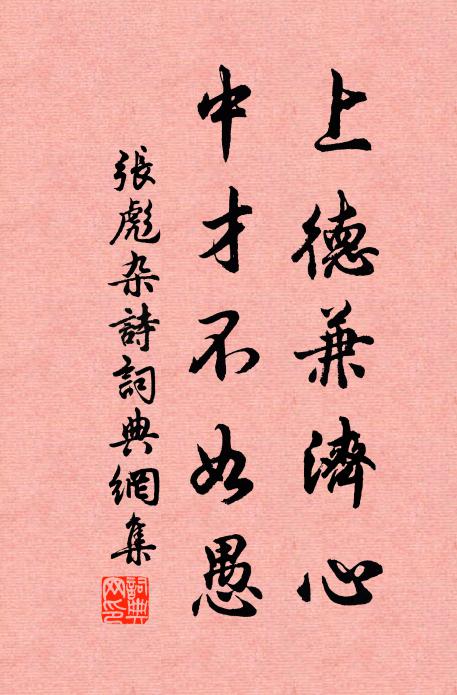 上德兼濟心
中才不如愚
張彪杂詩詞典網集
詞典網印